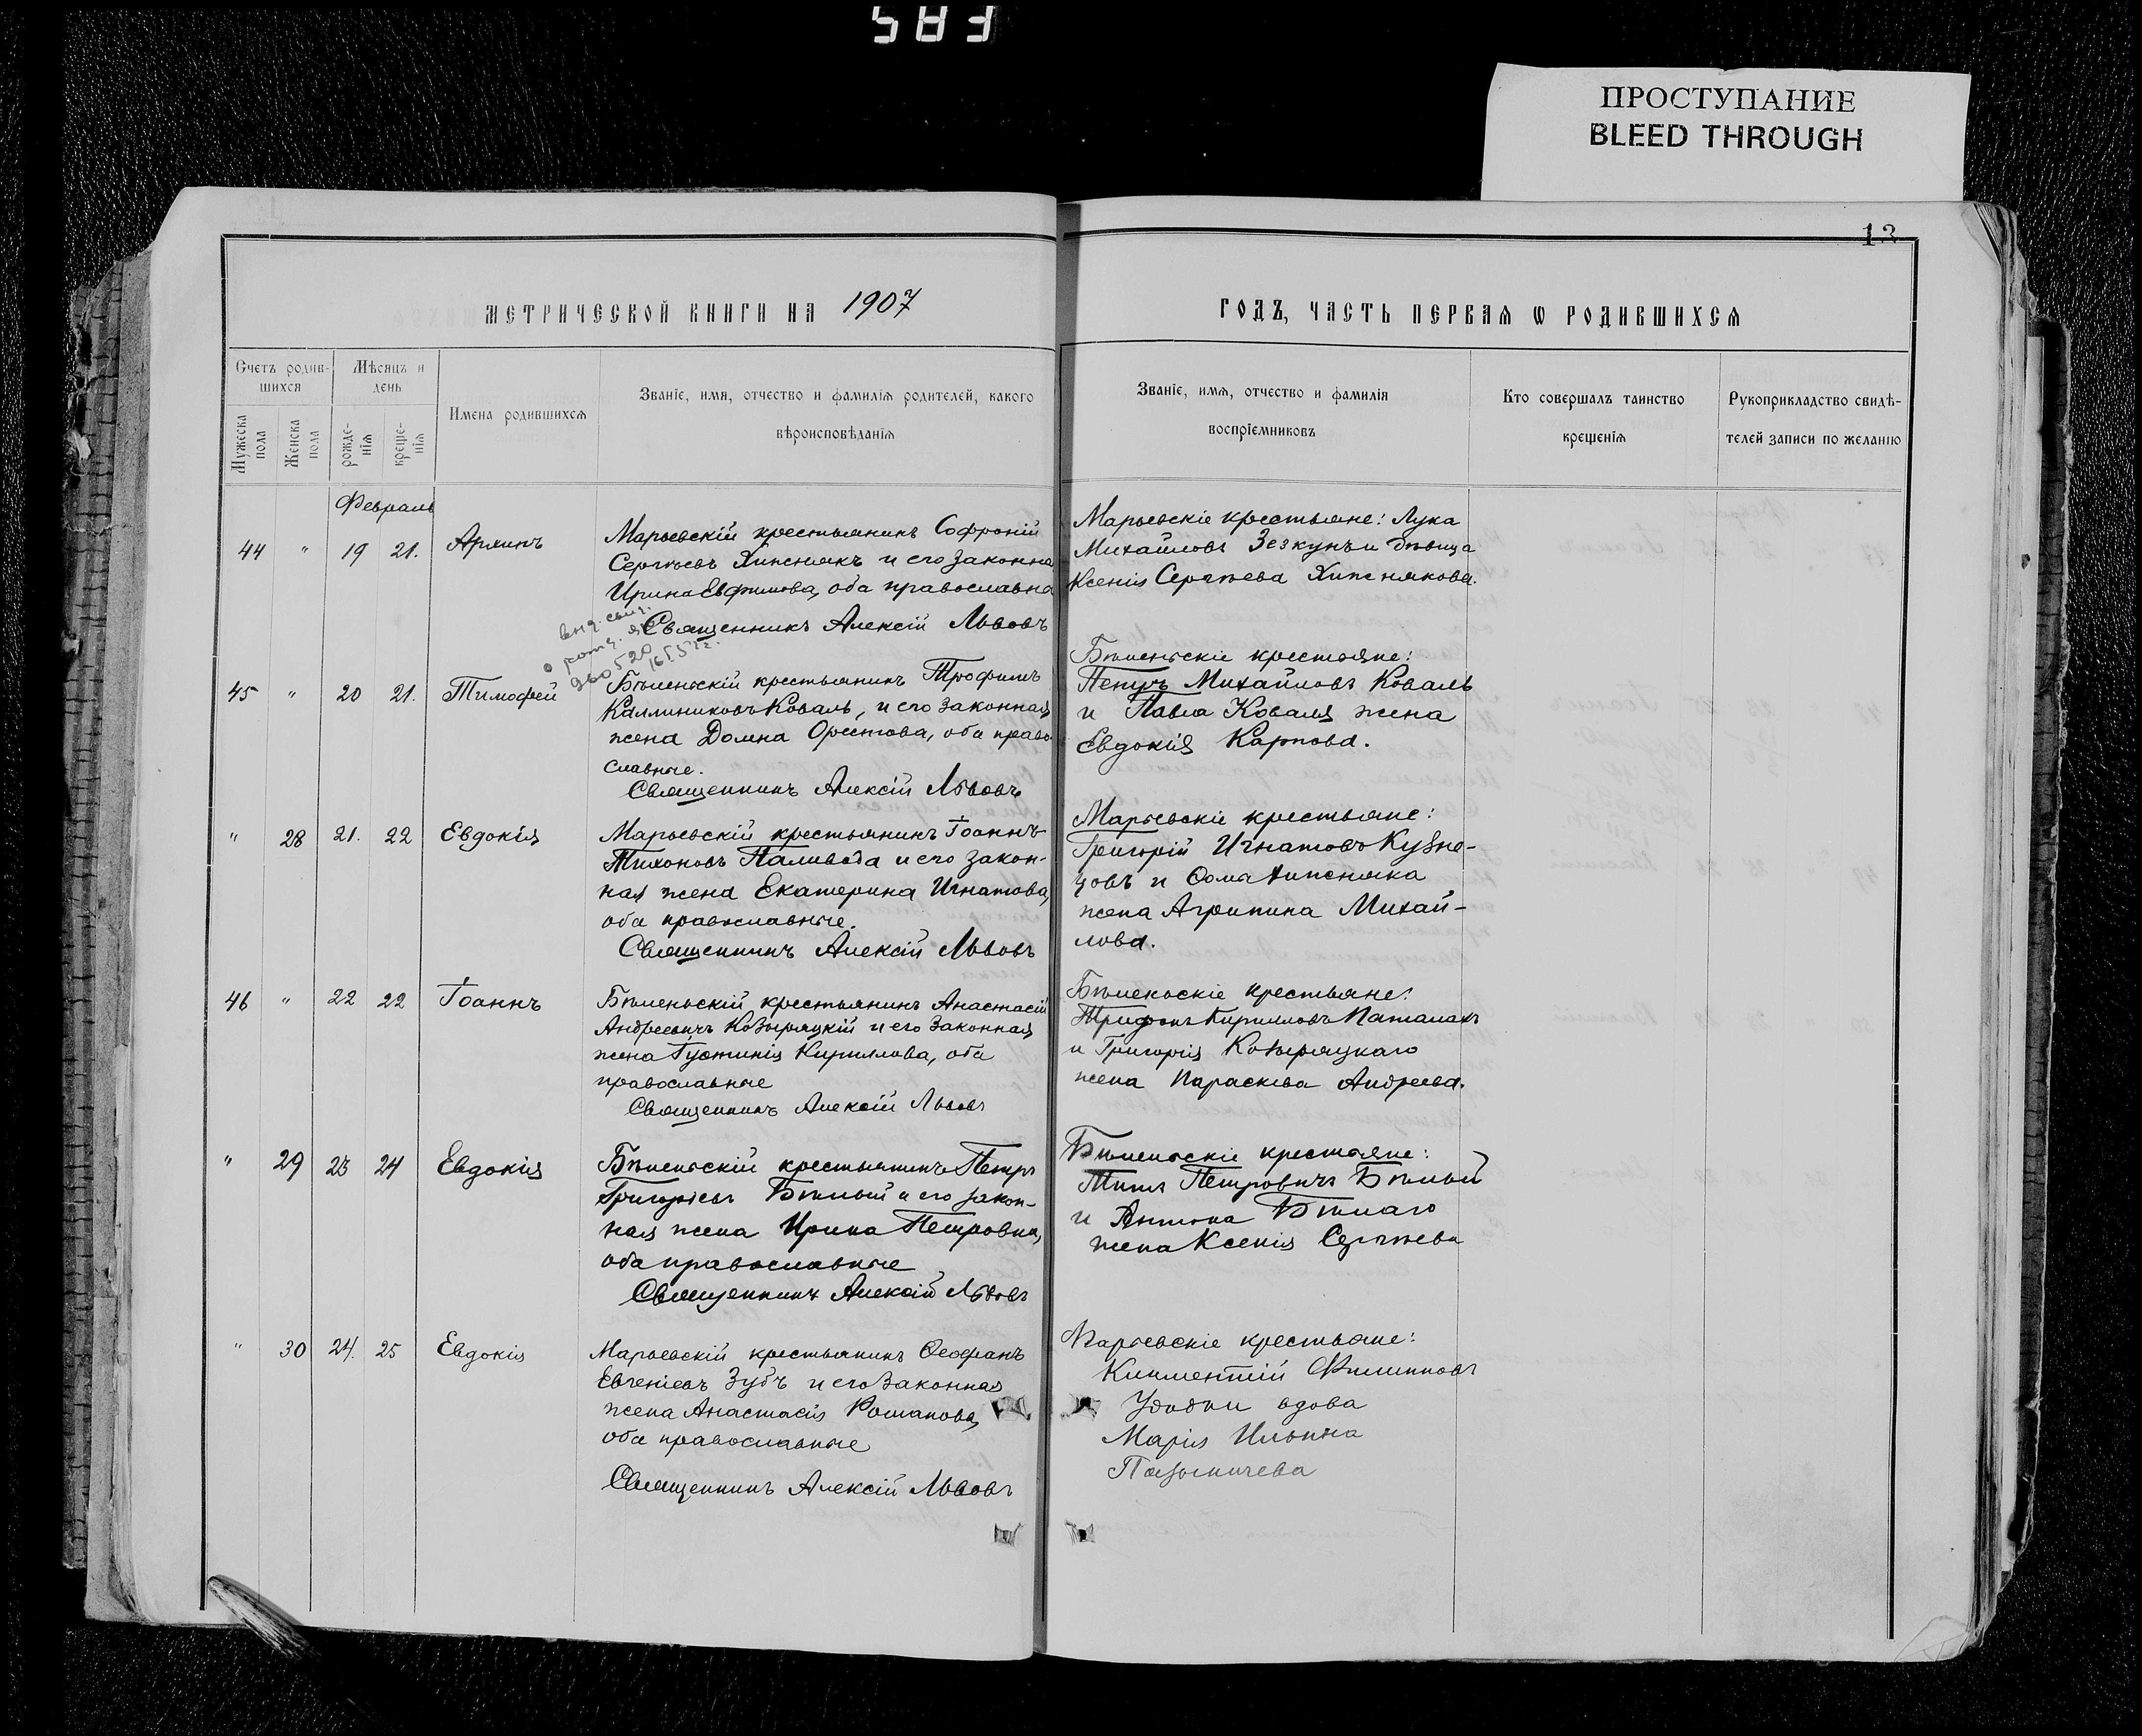 583
ПРОСТУПАНИЕ
BLEED THROUGH
13
МЕТРИЧЕСКОЙ КНИГИ НА 1907
ГОДЪ, ЧАСТЬ ПЕРВАЯ Ѡ РОДИВШИХСЯ
Счетъ родив-
шихся
Мѣсяцъ и
день
Мужеска
пола
Женска
пола
рожде-
нія
креще-
нія
Имена родившихся
Званіе, имя, отчество и фамилія родителей, какого
вѣроисповѣданія
Званіе, имя, отчество и фамилія
воспріемниковъ
Кто совершалъ таинство
крещенія
Рукоприкладство свидѣ-
телей записи по желанію
Февраль
44 " 19 21. Архипъ
Марьевскій крестьянинъ Софроній
Сергѣевъ Хипснякъ и его законна
Ирина Евфимова, оба православна
Священникъ Алексій Львовъ
Марьевскіе крестьяне: Лука
Михайловъ Зезкунъ и дѣвица
Ксенія Сергѣева Хипснякова.
45 " 20 21. Тимофей
Бѣленьскій крестьянинъ Трофимъ
Каллиниковъ Коваль, и его законная
жена Домна Орестова, оба право
славные.
Священникъ Алексій Львовъ
Бѣленьскіе крестьяне:
Петръ Михайловъ Коваль
и Павла Коваля жена
Евдокія Карпова.
" 28 21. 22 Евдокія
Марьевскій крестьянинъ Іоаннъ
Тихоновъ Паливода и его закон-
ная жена Екатерина Игнатова,
оба православные.
Священникъ Алексій Львовъ
Марьевскіе крестьяне:
Григорій Игнатовъ Кузне-
цовъ и Ѳома Хипсняка
жена Агрипина Михай-
лова.
46 " 22 22 Іоаннъ
Бѣленьскій крестьянинъ Анастасій
Андреевичъ Козыряцкій и его законная
жена Іустинія Кириллова, оба
православные
Священникъ Алексій Львовъ
Бѣленьскіе крестьяне:
Трифонъ Кирилловъ Паталахъ
и Григорія Козыряцкаго
жена Параскева Андреева.
" 29 23 24 Евдокія
Бѣленьскій крестьянинъ Петръ
Григорьевъ Бѣлый и его закон-
ная жена Ирина Петровна,
оба православные
Священникъ Алексій Львовъ
Бѣленьскіе крестьяне:
Титъ Петровичъ Бѣлый
и Антона Бѣлаго
жена Ксенія Сергѣева
" 30 24. 25 Евдокія
Марьевскій крестьянинъ Ѳеофанъ
Евгеніевъ Зубъ и его законная
жена Анастасія Романова,
оба православные
Священникъ Алексій Львовъ
Марьевскіе крестьяне:
Климентій Филипповъ
вдова
Марія Ильина